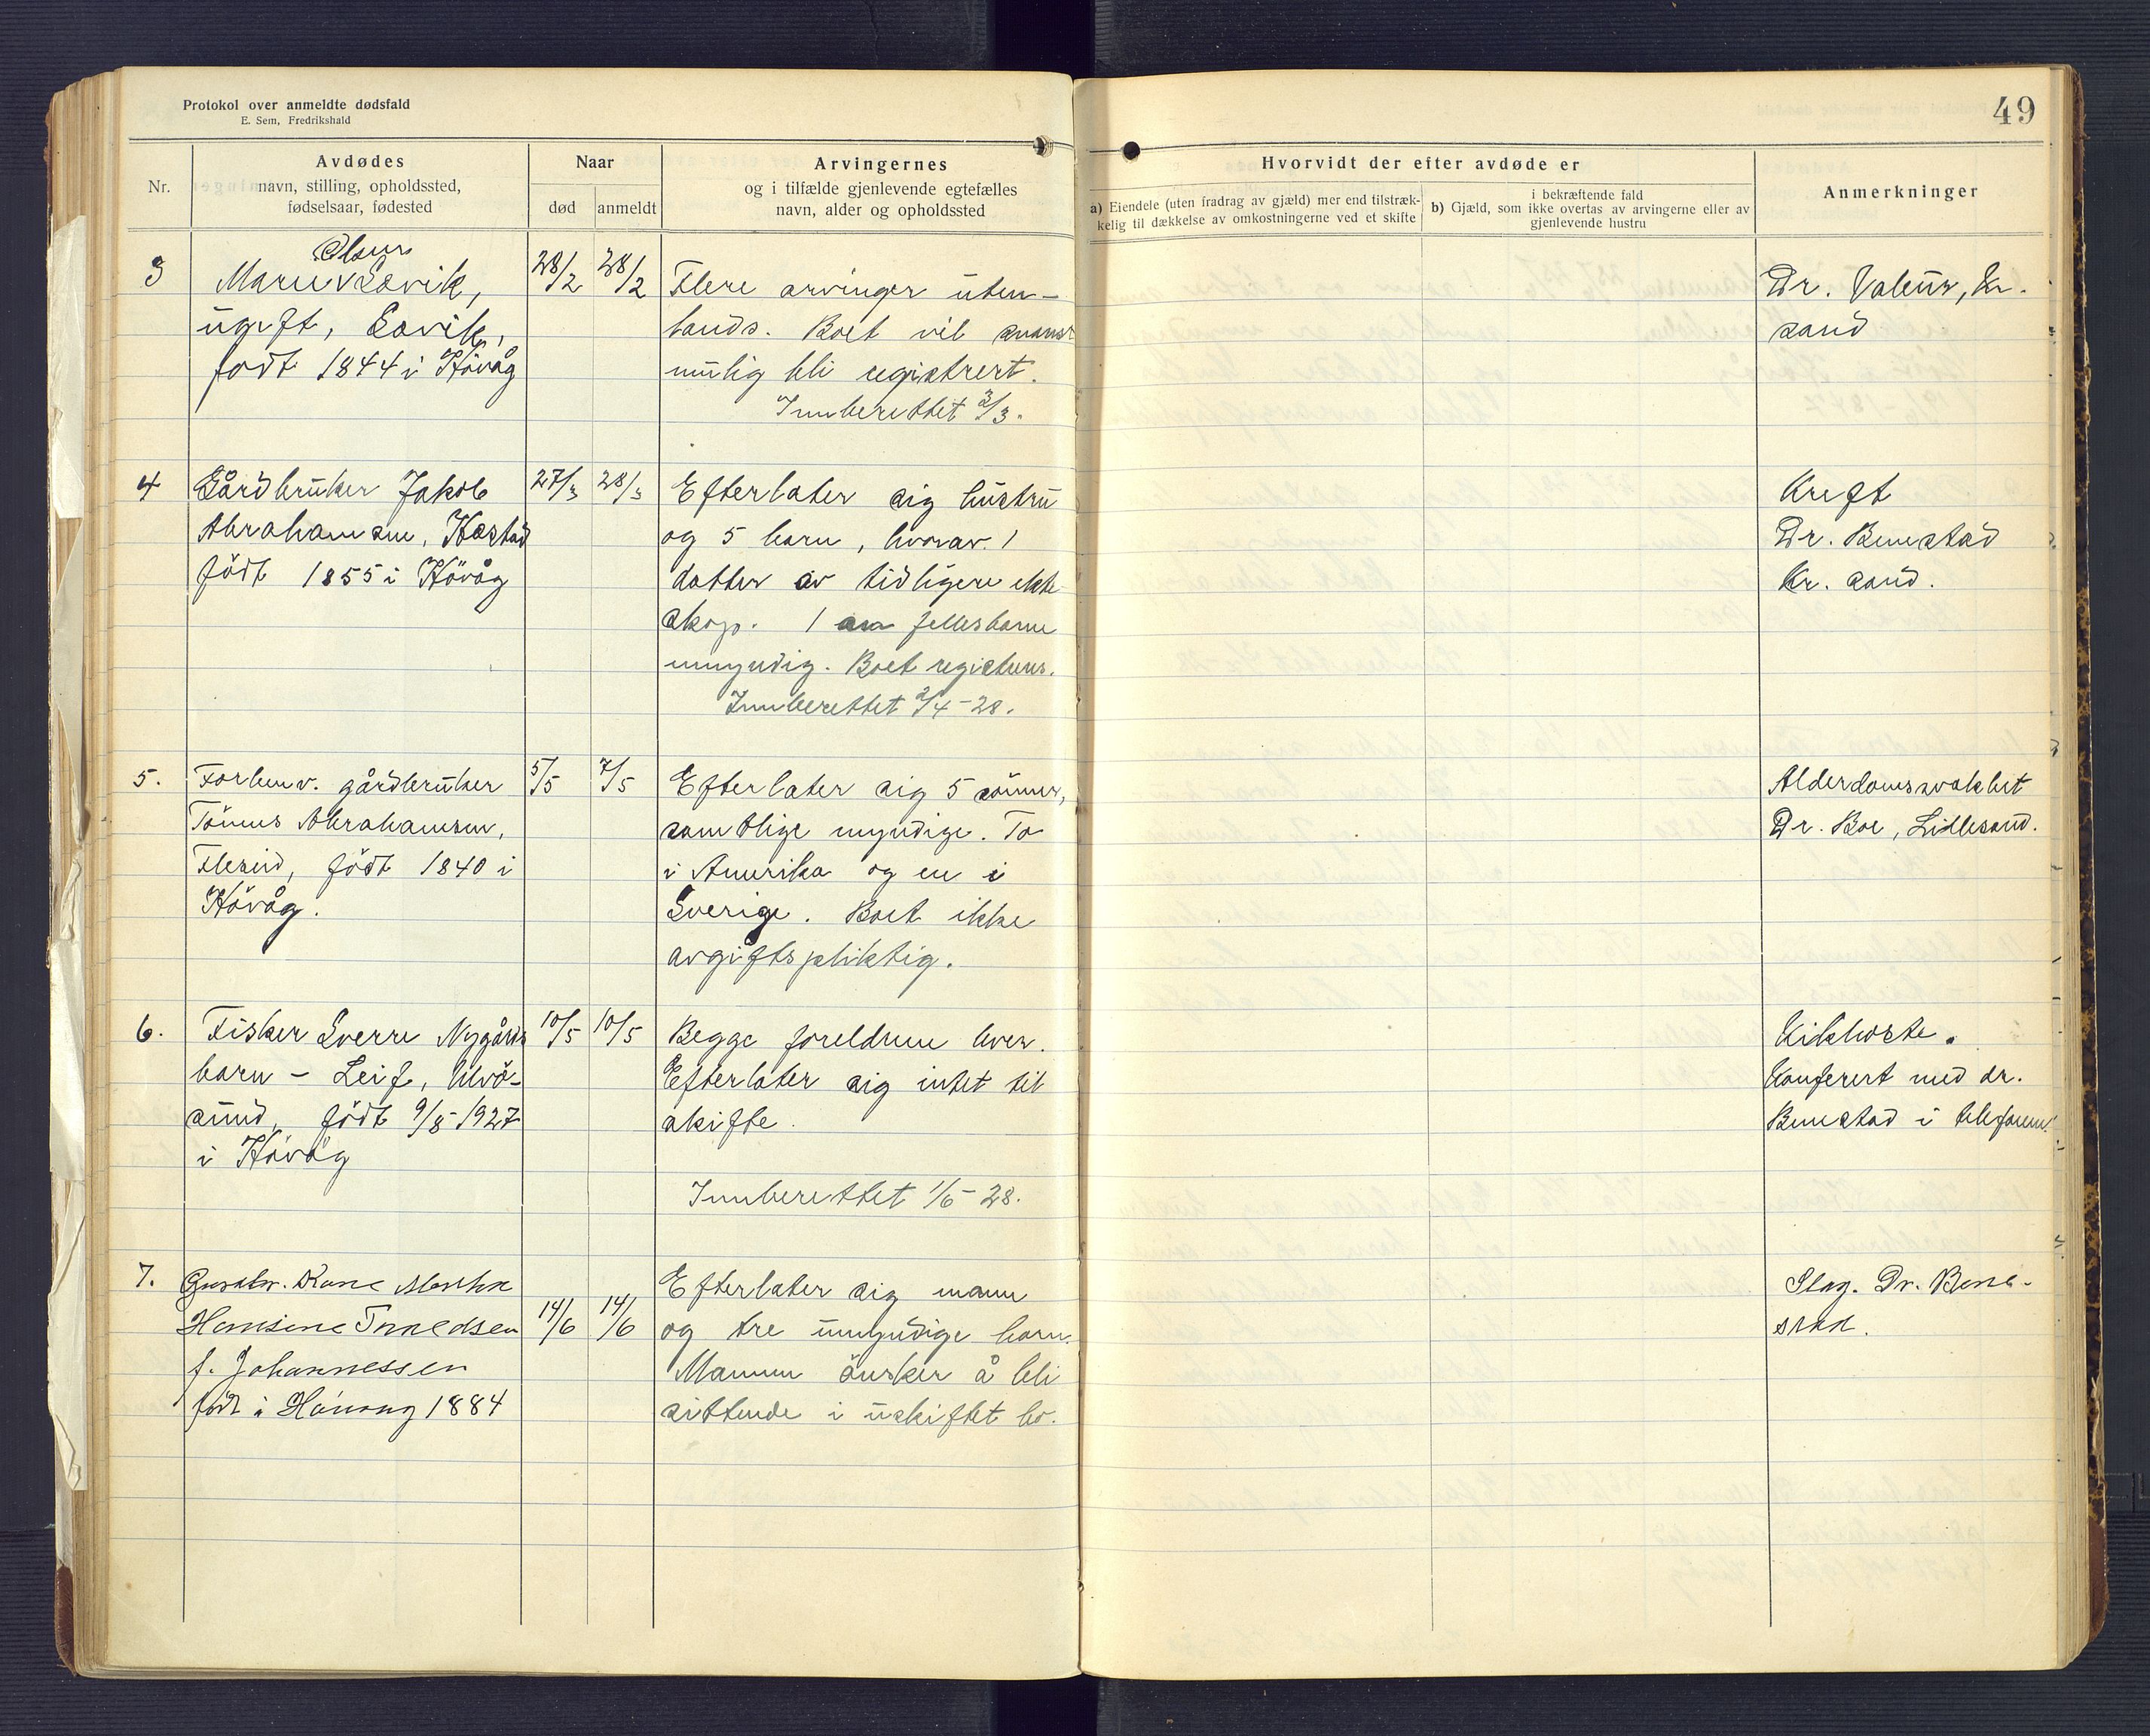 Protokol over anmeldte dødsfald
E. Sem, Fredrikshald
49
Nr.
Avdødes
navn, stilling, opholdssted,
fødselsaar, fødested
Naar
død
anmeldt
Arvingernes
og i tilfælde gjenlevende egtefælles
navn, alder og opholdssted
Hvorvidt der efter avdøde er
a) Eiendele (uten fradrag av gjæld) mer end tilstræk-
kelig til dækkelse av omkostningerne ved et skifte
i bekræftende fald
b) Gjæld, som ikke overtas av arvingerne eller av
gjenlevende hustru
Anmerkninger
3
Olsen
Marie v Eavik,
ugift, Eavik,
født 1844 i Hövåg
28/2
28/2
Flere arvinger uten-
lands. Boet vil
mulig bli registrert.
Innberettet 3/3.
Dr. Valeur, Kr.
sand
4
Gårdbruker Jakob
Abrahamsen, Kostad
födt 1855 i Hövåg
27/3
28/3
Efterlater sig hustru
og 5 barn, hvorav 1
datter av tidligere ekte-
skap. 1 av fellesbarne
umyndig. Boet registreres.
Innberettet 2/4-28.
Kreft
Dr. Benestad
Kr. sand.
5.
Forhenv. gårdbruker
Tönnes Abrahamsen,
födt 1840 i
Hövåg.
5/5
7/5
Efterlater sig 5 sönner,
samtlige myndige. To
i Amerika og en i
Sverige. Boet ikke
avgiftspliktig.
Alderdomssvakhet
Dr. Boe, Lillesand.
6.
Fisker Sverre Nygårds
barn - Leif, Ulvö-
sund, födt 9/8-1927
i Hövåg
10/5
10/5
Begge foreldrene lever.
Efterlater sig intet til
skifte.
Innberettet 1/6-28.
Kikhoste.
Konferert med dr.
Benestad i telefonen.
7.
Martha
Hansine
f. Johannessen
født i Høvaag 1884
14/6
14/6
Efterlater sig mann
og tre umyndige barn.
Mannen önsker å bli
sittende i uskiftet bo.
Slag. Dr. Bene-
stad.